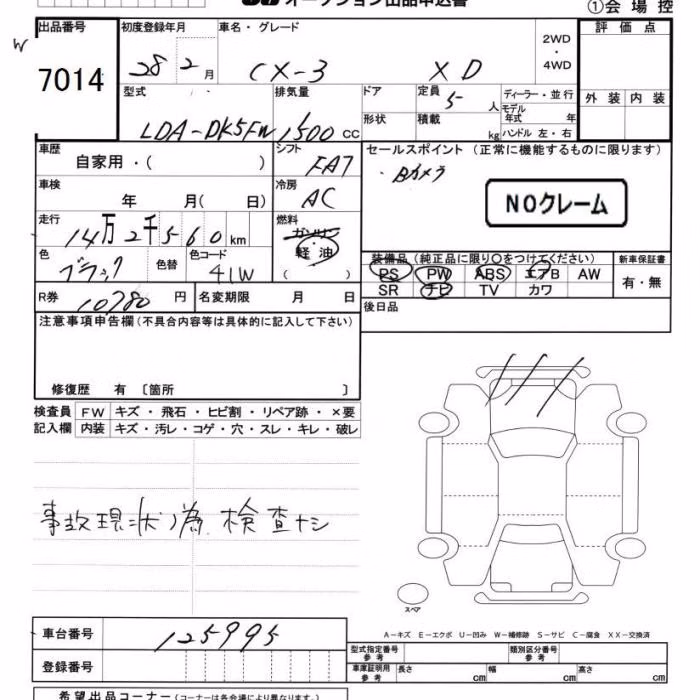 オークション出品申込書
①会場控
W
出品番号
7014
初度登録年月
28 2 月
車名・グレード
CX-3 XD
2WD
・
4WD
評価点
外装 内装
型式
LDA-DK5FW
排気量
1500 CC
ドア
形状
定員
5 人
積載
kg
ディーラー・並行
モデル
年式 年
ハンドル 左・右
車歴
自家用・( )
シフト
FAT
セールスポイント (正常に機能するものに限ります)
・Bカメラ
NOクレーム
車検
年 月( 日)
冷房
AC
走行
14万2千560km
燃料
ガソリン
・
軽油
( )
色
ブラック
色替
色コード
41W
装備品 (純正品に限り〇をつけてください)
PS PW ABS エアB AW
SR ナビ TV カワ
新車保証書
有・無
R券
10780 円
名変期限 月 日
後日品
注意事項申告欄(不具合内容等は具体的に記入して下さい)
修復歴 有 〔箇所 〕
検査員
記入欄
FW キズ・飛石・ヒビ割・リペア跡・×要
内装 キズ・汚レ・コゲ・穴・スレ・キレ・破レ
事故現状の為 検査ナシ
スペア
A-キズ E-エクボ U-凹み W-補修跡 S-サビ C-腐食 XX-交換済
車台番号
125995
登録番号
型式指定番号
参考
類別区分番号
参考
車庫証明用
参考
長さ cm
幅 cm
高さ cm
希望出品コーナー(コーナーは各会場により異なります。)